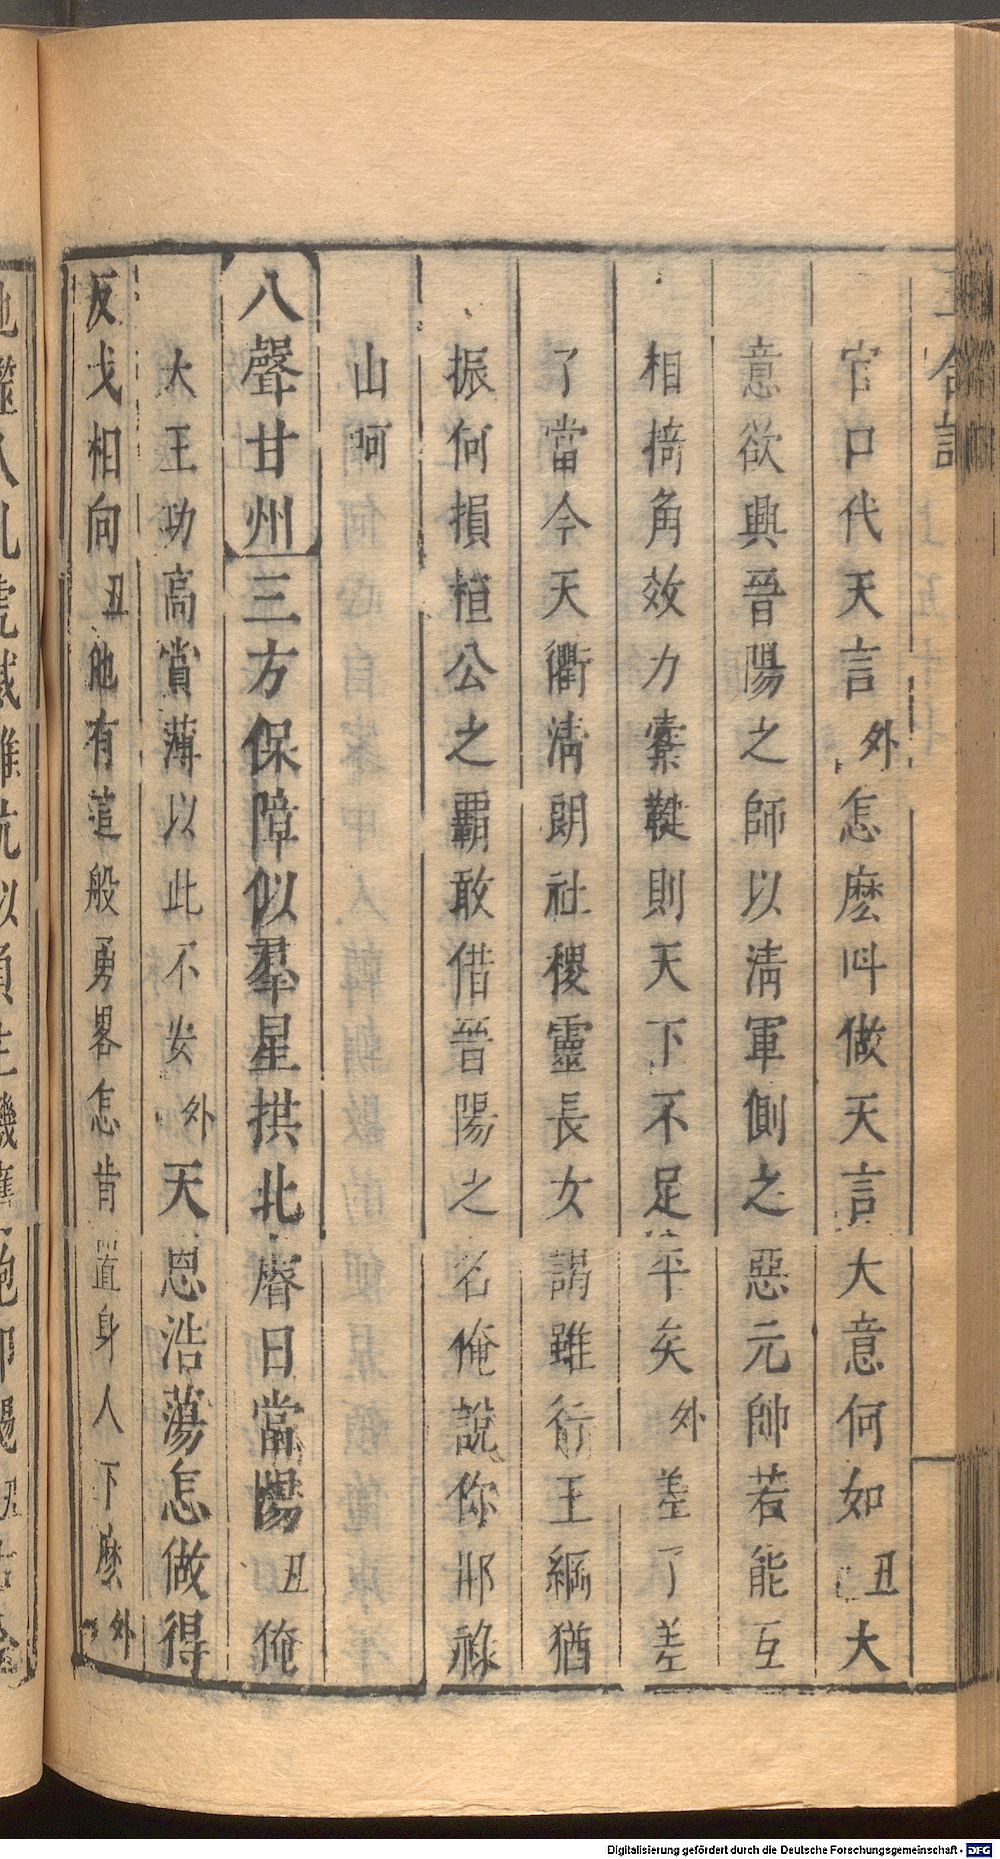 官口代天言外怎麽呌做天言大意何如丑大
意欲興晉陽之師以清軍側之惡元帥若能互
相掎角效力櫜鞬則天下不足平矣外差了差
了當今天衢清朗社稷靈長女謁雖行王綱猶
振何損桓公之霸敢借晉陽之名俺說你那祿
山呵
八聲甘州三方保障似羣星拱北麏日當陽丑俺
大王功高賞薄以此不安外天恩浩蕩怎做得
反戈相向丑他有這般勇畧怎肯置身人下麽外
Digitalisierung gefördert durch die Deutsche Forschungsgemeinschaft - DFG